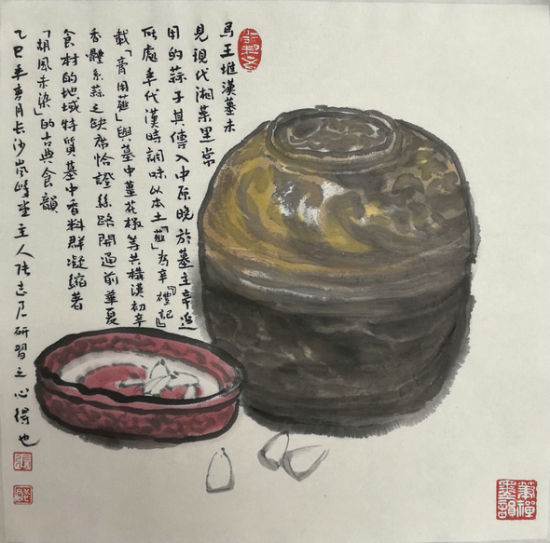 馬王堆漢墓未
見現代湘菜里常
用的蒜子其傳入中原晚於墓主辛追
所處年代漢時調味以本土「薤」為辛『禮記』
載「膏用薤」與墓中薑花椒等共構漢初辛
香體系蒜之缺席恰證絲路開通前華夏
食材的地域特質墓中香料群凝縮著
「胡風未染」的古典食韻
乙巳年月長沙堂主人張志研習之心得也
禪墨韻